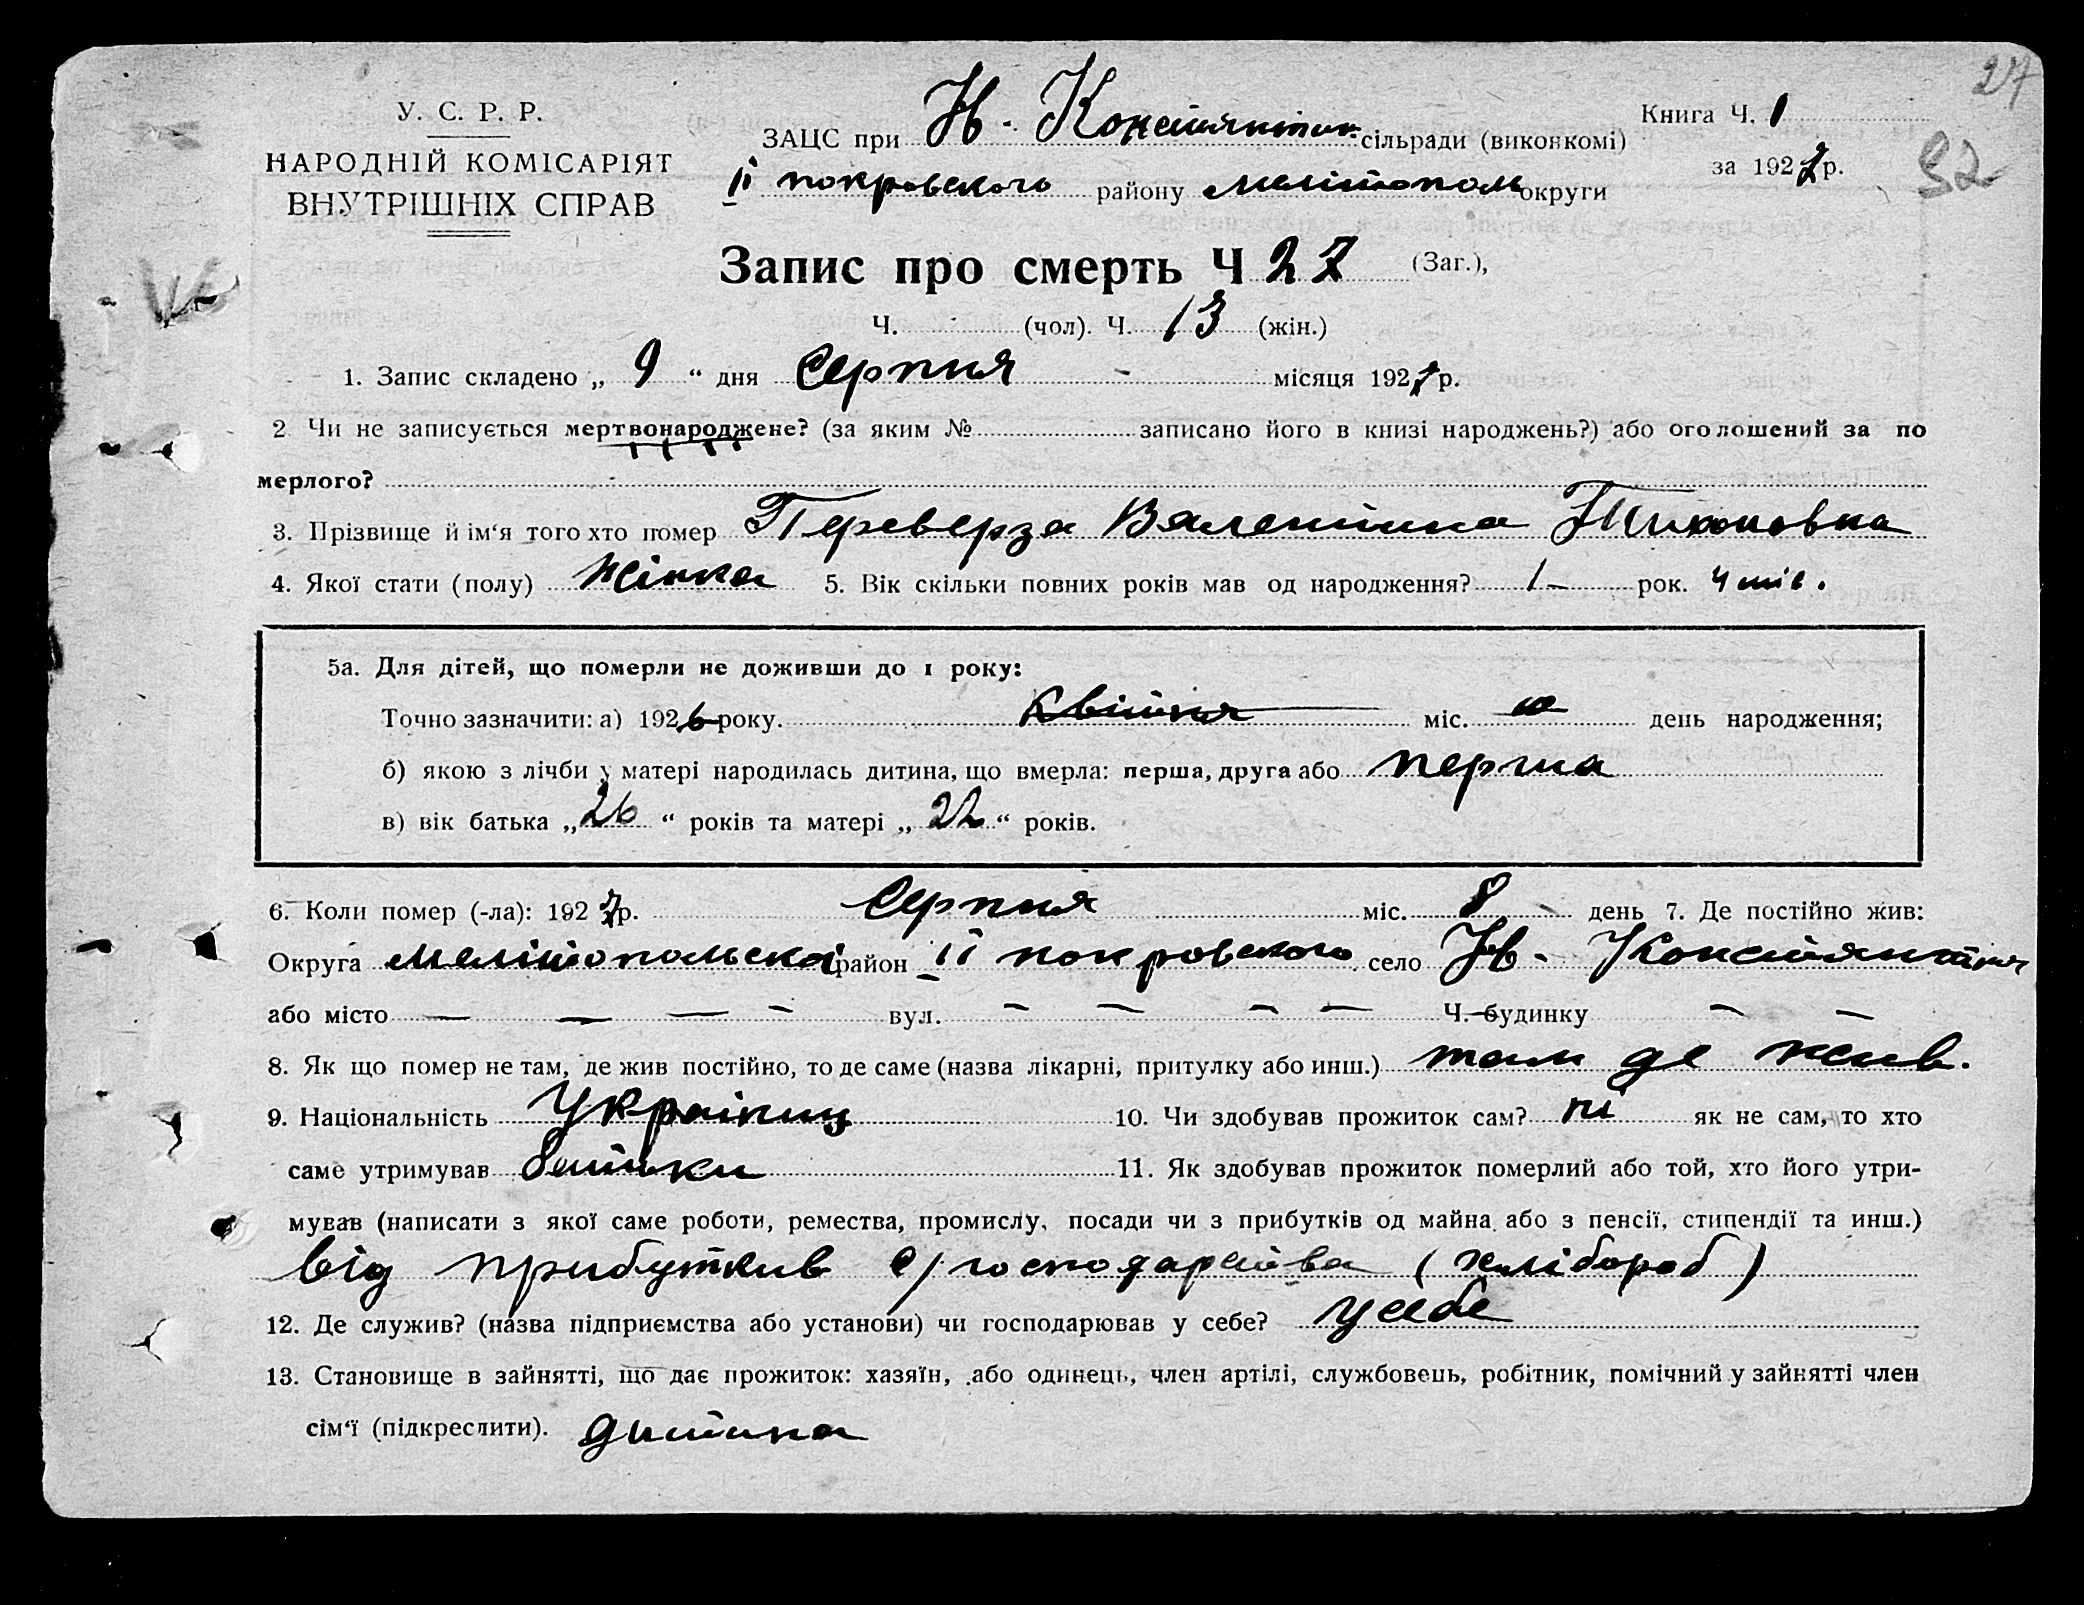 27
У. С. Р. Р.
НАРОДНІЙ КОМІСАРІЯТ
ВНУТРІШНІХ СПРАВ
ЗАЦС при Нв - Констянтин сільради (виконкомі)
ІІ покровского району мелітополь округи
Книга Ч. 1
за 1927 р.
32
Запис про смерть Ч 27 (Заг.),
Ч. (чол). Ч. 13 (жін.)
1. Запис складено „ 9 “ дня Серпня місяця 1927 р.
2 Чи не записується мертвонароджене? (за яким № записано його в книзі народжень?) або оголошений за по
мерлого?
3. Прізвище й ім‘я того хто помер Переверза Валентина Тихоновна
4. Якої стати (полу) Жінка 5. Вік скільки повних років мав од народження? 1 — рок. 4 міс.
5а. Для дітей, що померли не доживши до 1 року:
Точно зазначити: а) 1926 року. Квітня міс. 10 день народження;
б) якою з лічби у матері народилась дитина, що вмерла: перша, друга або перша
в) вік батька „ 26 “ років та матері „ 22 “ років.
6. Коли помер (-ла): 1927 р. Серпня міс. 8 день 7. Де постійно жив:
Округа мелітопольска район ІІ покровского село Нв - Констянтин
або місто — — — — вул. — — — — Ч. будинку — —
8. Як що помер не там, де жив постійно, то де саме (назва лікарні, притулку або инш.) там де жив.
9. Національність Українц 10. Чи здобував прожиток сам? ні як не сам, то хто
саме утримував батьки 11. Як здобував прожиток померлий або той, хто його утри-
мував (написати з якої саме роботи, ремества, промислу, посади чи з прибутків од майна або з пенсії, стипендії та инш.)
від прибутків с/господарства (хлібороб)
12. Де служив? (назва підприємства або установи) чи господарював у себе? у себе
13. Становище в зайнятті, що дає прожиток: хазяїн, або одинець, член артілі, службовець, робітник, помічний у зайнятті член
сім‘ї (підкреслити). дитина